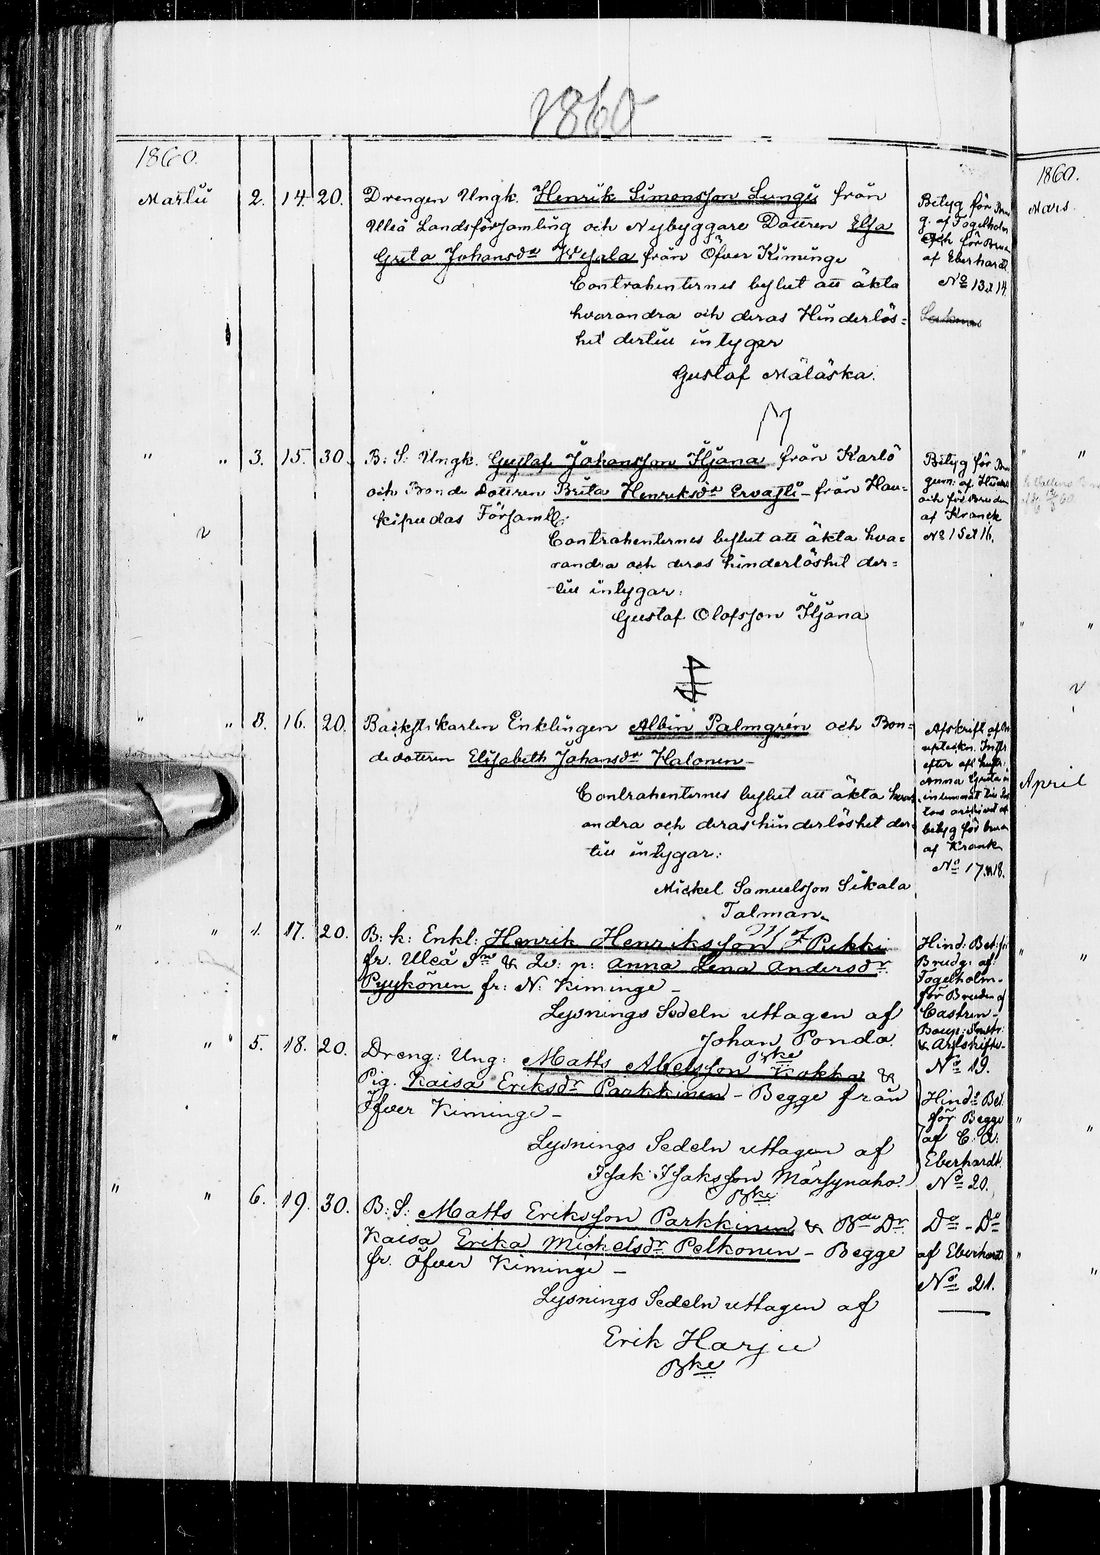 1860
1860.
Martii 2. 14. 20. Drengen Ungk. Henrik Simonsson Lungi från
Uleå Landsförsamling och Nybyggare Dottren Elsa
Greta Johansdr från Öfver Kiminge
Contrahenternes beslut att äkta
hvarandra och deras Hinderlös=
het dertill intyger
Gustaf Määläskä.
Betyg för Brud
g. af Fogelholm
och för Brud
af Eberhardt
No 13 et 14.
" " 3. 15. 30. B: S: Ungk. Gustaf Johansson Iljana från Karlö
och Bonde dottren Brita Henriksdr Ervasti – från Hau-
kipudas Församl:
Contrahenternes beslut att äkta hva=
randra och deras hinderlöshet der=
till intygar:
Gustaf Olofsson Iljana
Betyg för Brud
gum: af
och för Bruden
af Kranck
No 15 et 16.
" " 3. 16. 20. Enklingen Albin Palmgrén och Bon=
dedottren Elisabeth Johansdr Halonen –
Contrahenternes beslut att äkta hvar
andra och deras hinderlöshet der=
till intygar:
Mickel Samuelsson Sikala
Talman
Afskrift af
efter afl. hustr.
Anna Greta
betyg för brud
af Kranck
No 17 18.
" " 4. 17. 20. B: k: Enkl: Henrik Henriksson Pukki
fr. Uleå Sn & Ew: p: Anna Lena Andersdr
Pyykönen fr: N: Kiminge –
Lysnings Sedeln uttagen af
Johan Ponda
Bke
Hind: Bet: för
Brudg: af
Fogelholm –
för Bruden af
Castrén –
& Arfskifts
No 19.
" " 5. 18. 20. Dreng: Ung: Matts Abelsson Kokko &
Pig. Kaisa Eriksdr Parkkinen – Begge från
Öfver Kiminge –
Lysnings Sedeln uttagen af
Isak Isaksson Märsynaho.
Bke
Hind: Bet
för Begge
af C: A:
Eberhardt.
No 20.
" " 6. 19. 30. B: S: Matts Eriksson Parkkinen & Bde Dr
Kaisa Erika Mickelsdr Pelkonen – Begge
fr. Öfver Kiminge –
Lysnings Sedeln uttagen af
Erik Harju
Bke
Do – Do
af Eberhardt
No 21.
1860.
Mars.
" "
"
April
"
"
"
"